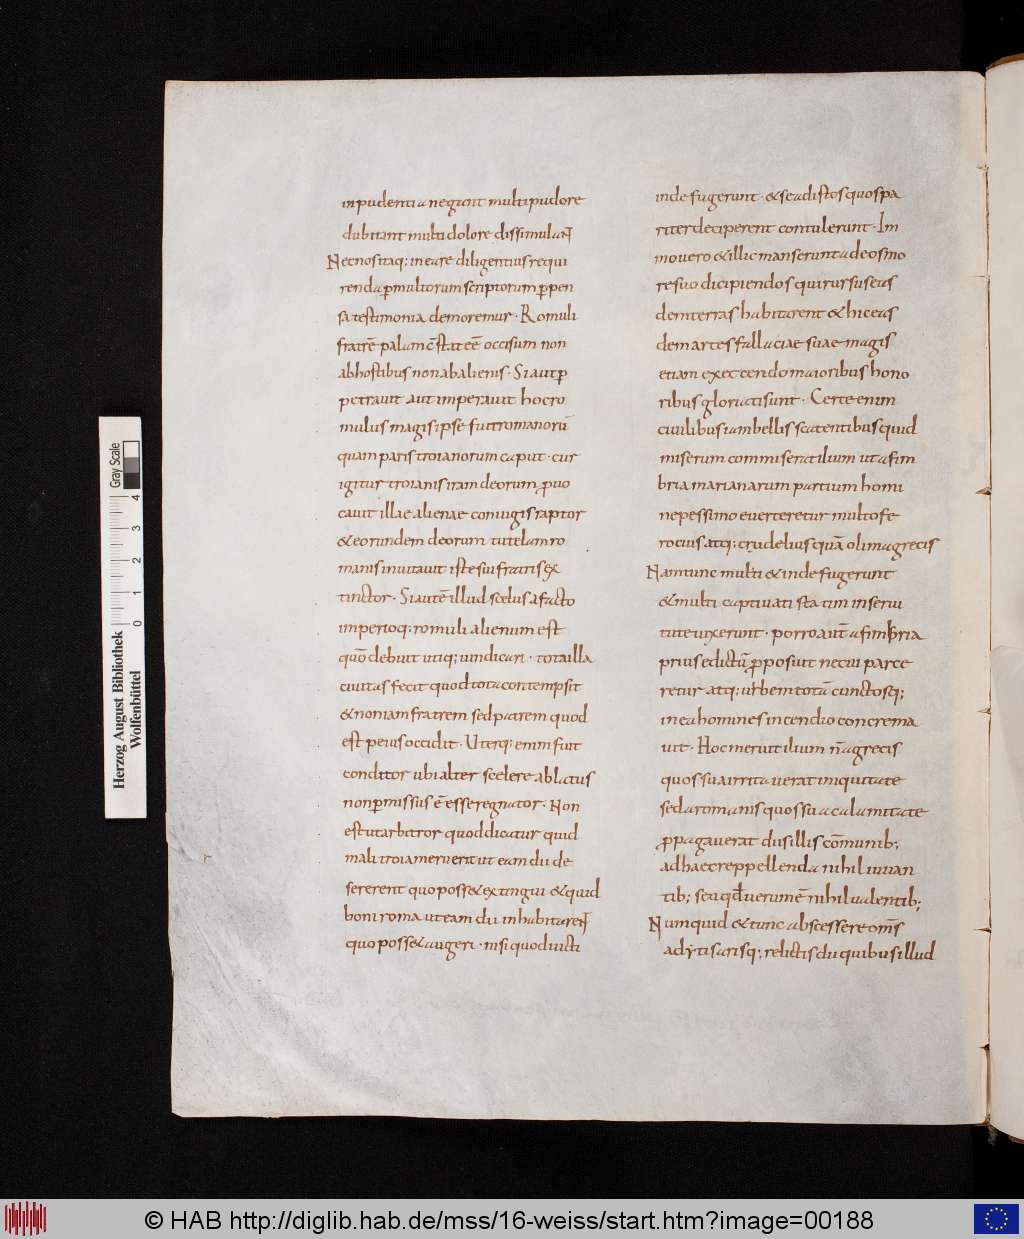 inpudentia negant multi pudore
dubitant multi dolore dissimulant
Nec nos itaq; in eare diligentius requi
renda p̄ multorum scriptorum p̄pen
sa testimonia demoremur · Romuli
fratrē palam cōstat eē occisum non
ab hostibus non ab alienis · Si aut p̄
petrauit aut imperauit hoc ro
mulus magis ipse fuit romanorū
quam paris troianorum caput · cur
igitur troianis iram deorum p̄uo
cauit ille alienae coniugis raptor
& eorundem deorum tutelam ro
manis inuitauit iste sui fratris ex
tinctor · Si autē illud scelus a facto
imperioq; romuli alienum est
quō debuit utiq; uindicari · tota illa
ciuitas fecit quod tota contempsit
& non iam fratrem sed patrem quod
est peius occidit · Uterq; enim fuit
conditor ubi alter scelere ablatus
non p̄missus ē esse regnator · Non
est ut arbitror quod dicatur quid
mali troia meruerit ut eam dii de
sererent quo poss& extingui & quid
boni roma ut eam dii inhabitarent
quo poss& augeri · nisi quod uicti
inde fugerunt · & se ad istos quos pa
riter deciperent contulerunt · Im
mo uero & illic manserunt ad eos mo
re suo dicipiendos qui rursus eas
dem terras habitarent & hic eas
dem artes fallaciae suae magis
etiam exercendo maioribus hono
ribus gloriati sunt · Certe enim
ciuilibus iam bellis scatentibus quid
miserum commiserat ilium ut a fim
bria marianarum partium homi
ne pessimo euerteretur multo fe
rocius atq; crudelius quā olim a grecis
Nam tunc multi & inde fugerunt
& multi captiuati sta tim in serui
tute uixerunt · porro aūt a fimbria
prius edictū p̄positum ne cui parce
retur atq; urbem totā cunctosq;
in ea homines incendio concrema
uit · Hoc meruit ilium n̄ a grecis
quos sua irritauerat iniquitate
sed a romanis quos sua calamitate
p̄pagauerat diis illis cōmunib;
ad haec reppellenda nihil iuuan
tib; seu qđ uerum ē nihil ualentib;
Numquid & tunc abscessere om̄s
adytis arisq; relictis dii quibus illud
Herzog August Bibliothek
Wolfenbüttel
0 1 2 3 4
Gray Scale
© HAB http://diglib.hab.de/mss/16-weiss/start.htm?image=00188